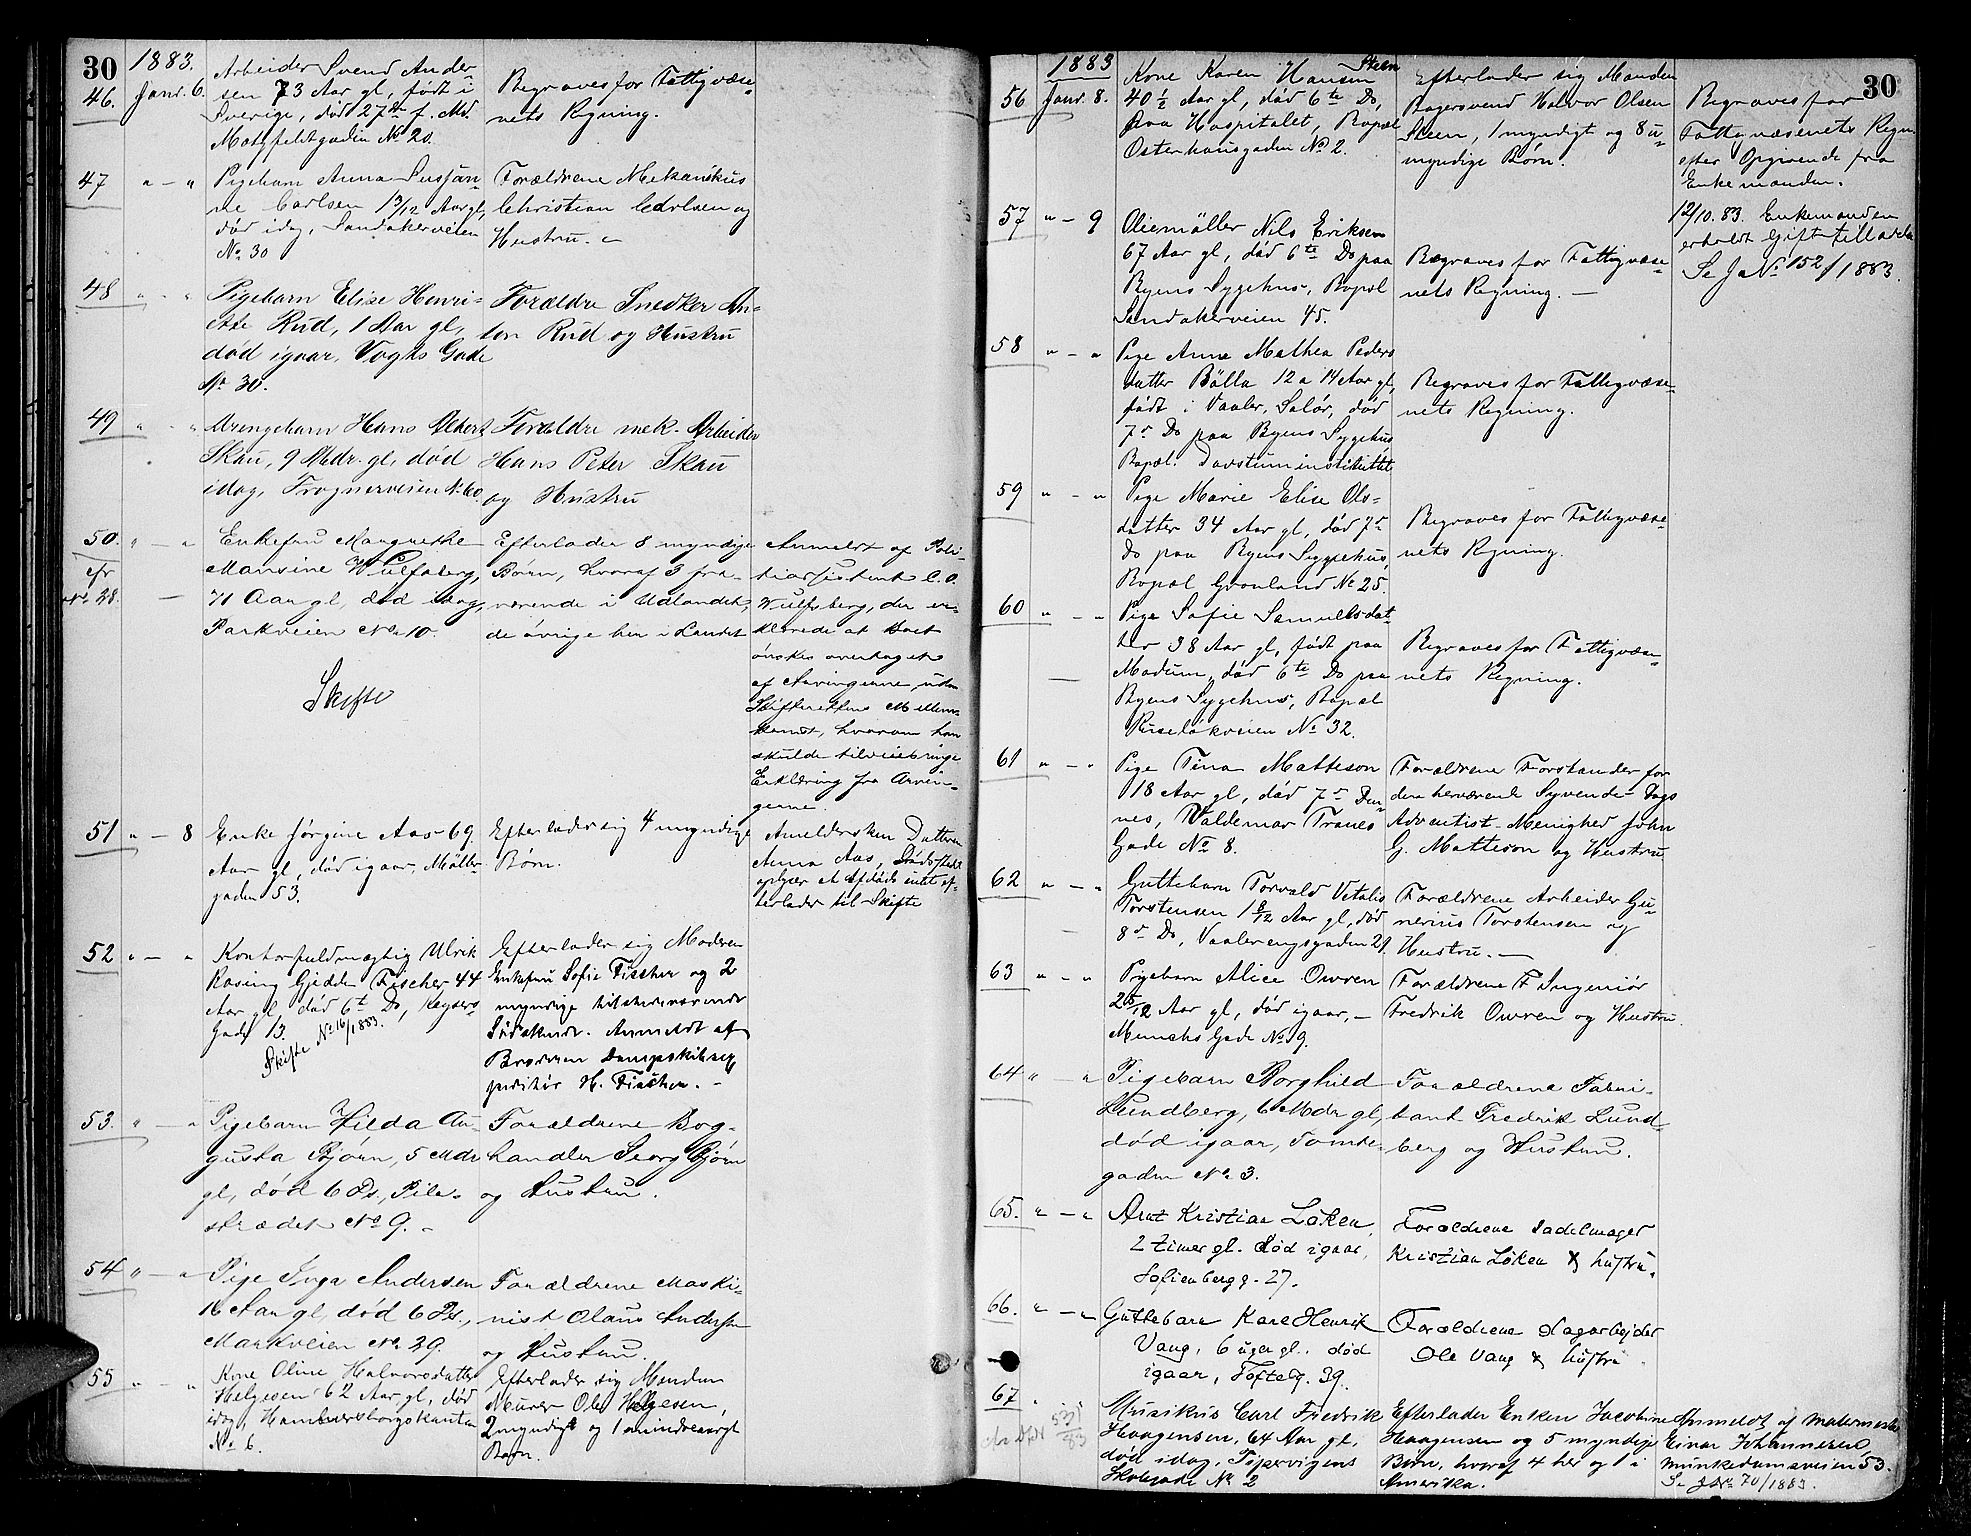 30
1883.
46.
Janr. 6.
Arbeider Svend Ander-
sen 73 Aar gl, født i
Sverige, død 27de f. Md.
Motzfeldtsgaden No 20.
Begraves for Fattigvæse-
nets Regning.
47
" - "
Pigebarn Anna Susjan-
ne Carlsen 1 3/12 Aar gl,
død idag, Sandakerveien
No 30
Forældrene Mekanikus
Christian Carlsen og
Hustru. -
48
" - "
Pigebarn Elise Henri-
ette Rud, 1 Aar gl,
død igaar, Vogts Gade
No 30.
Forældre Snedker An-
ton Rud og Hustru
49
" - "
Drengebarn Hans Albert
Skau, 9 Mdr. gl, død
idag, Frognerveien No 60.
Forældre mek. Arbeider
Hans Peter Skau
og Hustru
50.
cfr
No 28.
" - "
Enkefru Margrethe
Mansine Wulfsberg,
71 Aar gl, død idag,
Parkveien No 10.
Skifte
Efterlader 8 myndige
Børn, hvoraf 3 fra-
værende i Udlandet,
de øvrige her i Landet
Anmeldt af Poli-
tiassistent C. O.
Wulfsberg, der er-
klærede at Boet
ønskes overtaget
af Arvingerne uden
Skifterettens Mellem-
komst, hvorom han
skulde tilveiebringe
Erklæring fra Arvin-
gerne.
51
" - 8
Enke Jørgine Aas 69
Aar gl, død igaar, Møller-
gaden 53.
Efterlader sig 4 myndige
Børn.
Anmeldersken Datteren
Anna Aas, Dødsstedet
oplyser at Afdøde intet ef-
terlader til Skifte
52
" - "
Kontorfuldmægtig Ulrik
Rosing Gjedde Fischer 44
Aar gl, død 6t Ds, Keysers
Gade 13.
Skifte No 16/1883.
Efterlader sig Moderen
Enkefru Sofie Fischer og 2
myndige tilstedeværende
Sødskende. Anmeldt af
Broderen Dampskibsex-
peditør H. Fischer. -
53.
" - "
Pigebarn Hilda Au-
gusta Bjørn, 5 Mdr
gl, død 6 Ds, Pile-
strædet No 9. -
Forældrene Bog-
handler Georg Bjørn
og Hustru.
54
" - "
Pige Inga Andersen
16 Aar gl, død 6 Ds.,
Markveien No 29.
Forældrene Maski-
nist Olaus Andersen
og Hustru.
55
" - "
Kone Oline Halvorsdatter
Helgesen 62 Aar gl, død
idag, Hammersborgskanten
No 6.
Efterlader sig Manden
Murer Ole Helgesen,
2 myndige og 1 mindreaarigt
Barn.
30
1883
56
Janr. 8.
Kone Karen Hansen Steen
40 1/2 Aar gl, død 6te Ds,
paa Hospitalet, Bopæl
Osterhausgaden No 2.
Efterlader sig Manden
Bagersvend Halvor Olsen
Steen, 1 myndigt og 8 u-
myndige Børn.
Begraves for
Fattigvæsenets Regn.
efter Opgivende fra
Enkemanden.
12/10.83. Enkemanden
erholdt Giftetilladelse
Se J No 152/1883.
57
" - 9
Oliemøller Nils Eriksen
67 Aar gl, død 6te Ds paa
Byens Sygehus, Bopæl
Sandakerveien 45.
Begraves for Fattigvæse-
nets Regning. -
58
" - "
Pige Anne Mathea Peders
datter Bølla 12 a 14 Aar gl,
født i Vaaler, Solør, død
7de Ds paa Byens Sygehus
Bopæl: Døvstuminstituttet
Begraves for Fattigvæse-
nets Regning.
59
" - "
Pige Marie Elise Ols-
datter 34 Aar gl, død 7de
Ds paa Byens Sygehus,
Bopæl Grønland No 25.
Begraves for Fattigvæse-
nets Regning.
60
" - "
Pige Sofie Samuelsdat-
ter 38 Aar gl, født paa
Modum, død 6te Ds paa
Byens Sygehus, Bopæl
Ruseløkveien No 32.
Begraves for Fattigvæse-
nets Regning.
61
" - "
Pige Tina Matteson
18 Aar gl, død 7de Den-
nes, Waldemar Tranes
Gade No 8.
Forældrene Forstander for
den herværende Syvende-Dags
Adventist-Menighed John
G. Matteson og Hustru
62
" - "
Guttebarn Torvald Vitalis
Torstensen 1 8/12 Aar gl, død
8de Ds, Vaalerengsgaden 29
Forældrene Arbeider Gu-
nerius Torstensen og
Hustru. -
63
" - "
Pigebarn Alice Owren
2 5/12 Aar gl, død igaar, -
Munchs Gade No 9.
Forældrene Ingeniør
Fredrik Owren og Hustru.
64
" - "
Pigebarn Borghild
Lundberg, 6 Mdr gl,
død igaar, Tomte-
gaden No 3.
Forældrene Fabri-
kant Fredrik Lund-
berg og Hustru.
65.
" - "
Arnt Kristian Løken,
2 timer gl. død igaar,
Sofienbergg. 27.
Forældrene Sadelmager
Kristian Løken & hustru.
66.
" - "
Guttebarn Kare Henrik
Vang, 6 uger gl. død
igaar, Tofteg. 39.
Forældrene dagarbejder
Ole Vang & hustru
67
531/83
Musikus Carl Fredrik
Haagensen, 64 Aar gl,
død idag, Pipervigens
Skolegade No 2
Efterlader Enken Jacobine
Haagensen og 5 myndige
Børn, hvoraf 4 her og 1 i
Amerika.
Anmeldt af Malermester
Einar Johannesen,
Munkedamsveien 53.
Se J No 70/1883.